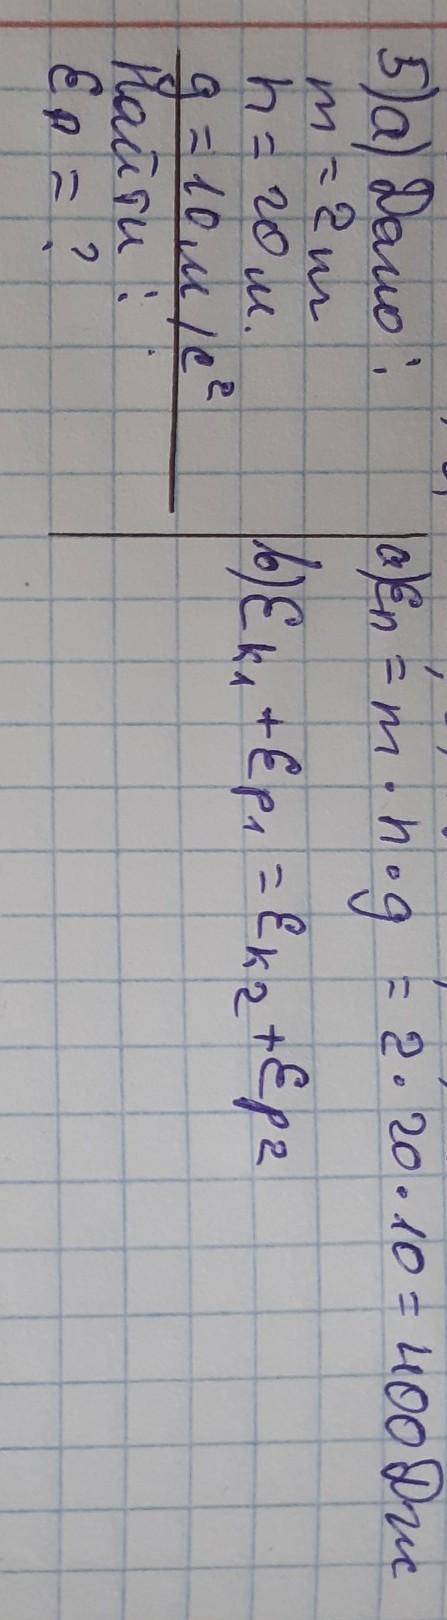 5)а) Дано:
m = 2 кг
h = 20 м.
g = 10 м/с²
Найти:
Ep = ?
а) Еп = m · h · g = 2 · 20 · 10 = 400 Дж
b) Eк1 + Ep1 = Eк2 + Ep2